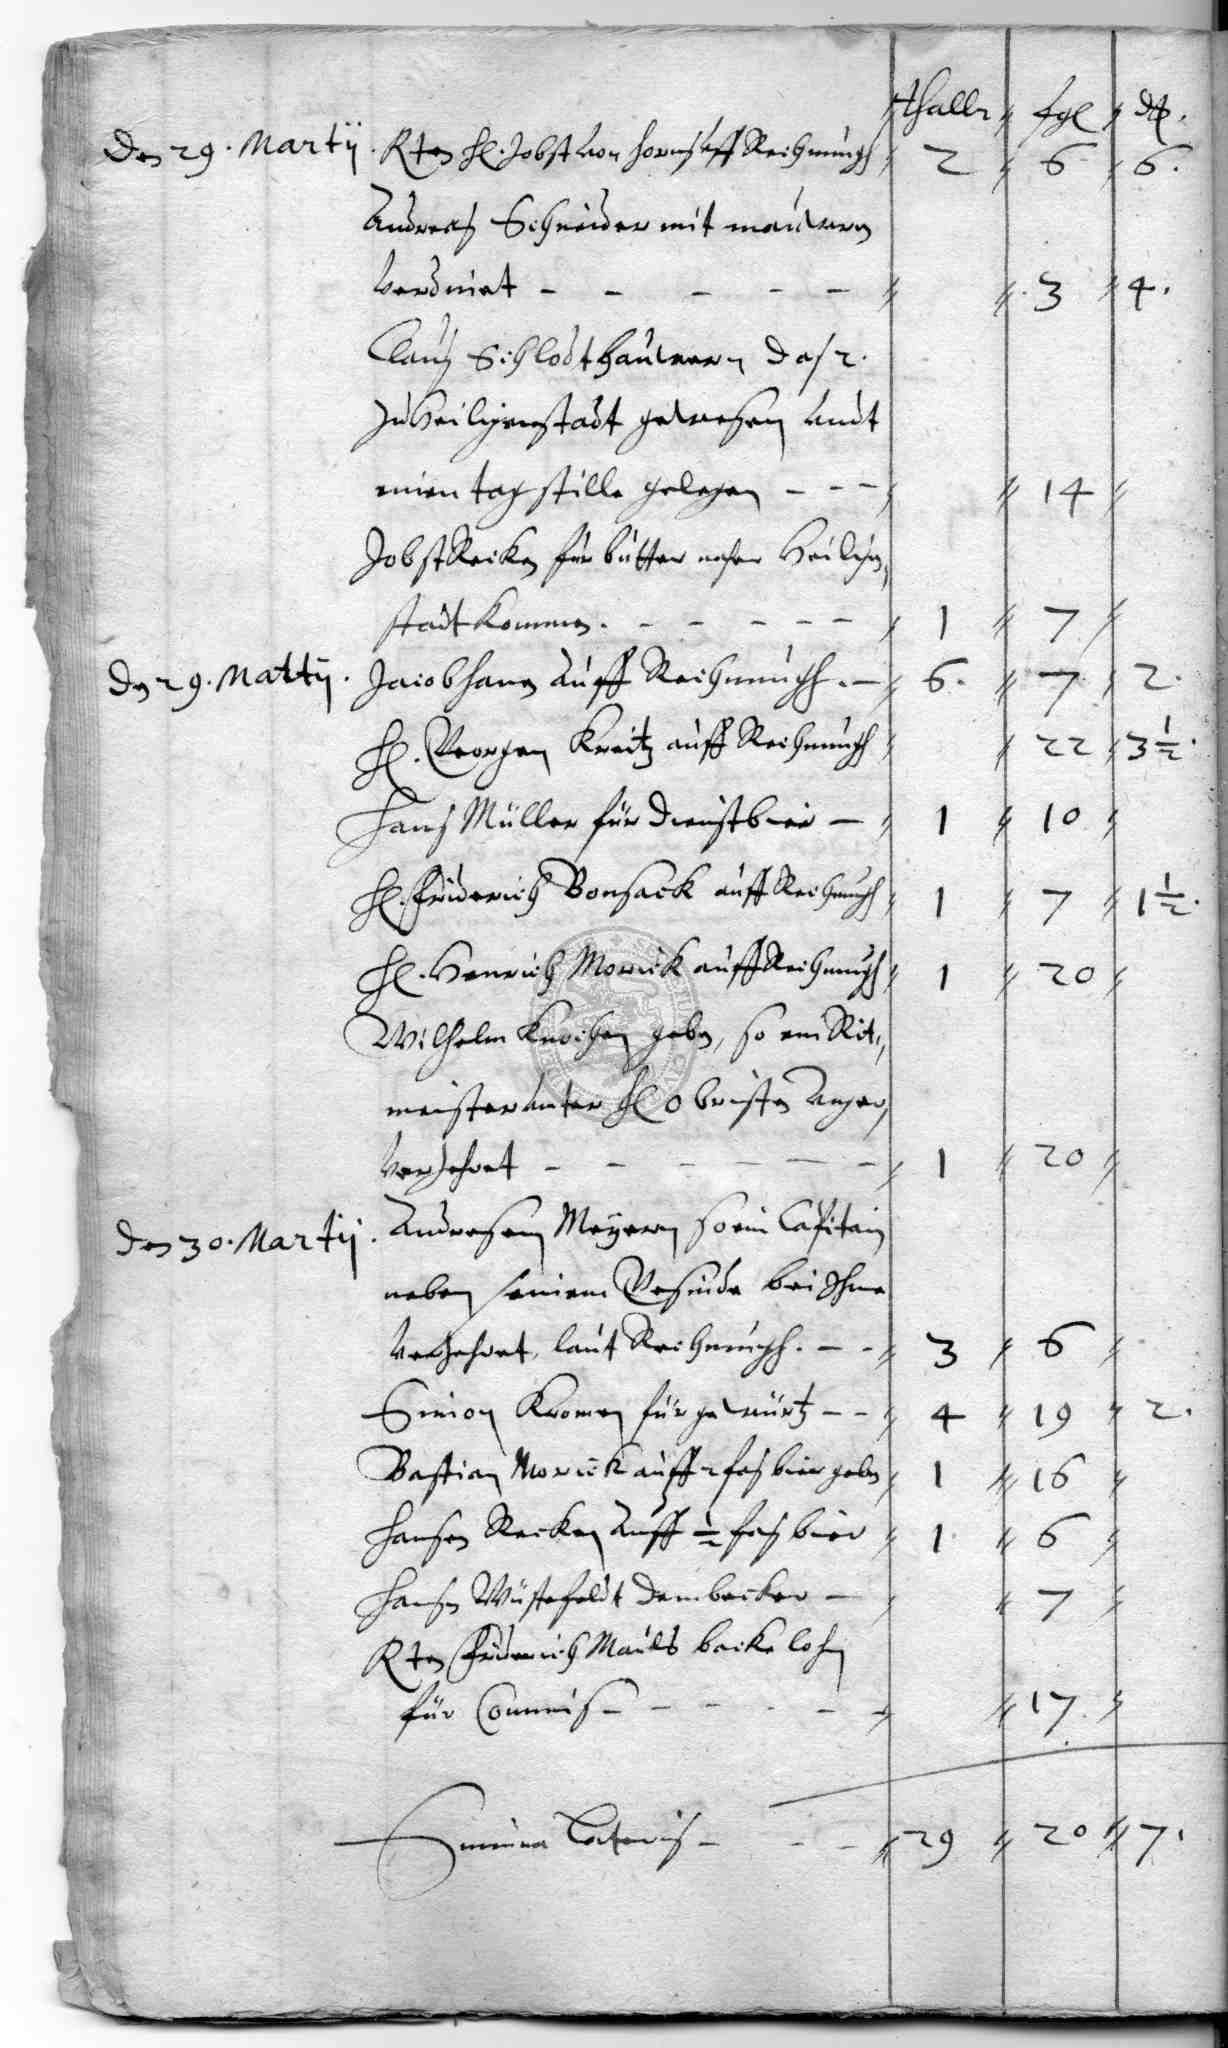 thaller fgl ₰.
Den 29. Martij. Hr. Jobst von horns uff Rechnungh 2 6 6.
Andreas Schneider mit mauwern
verdinet - - - - - 3 4.
Clauß Schlodthauwern Das 2.
zu Heiligenstadt gewesen undt
einen tag stille gelegen - - - 14
Jobst Recken für butter naher Heiligen
stadt kommen. - - - - - 1 7
Den 29. Martij. Jacob hanen auff Rechnungh. - 6. 7 2.
H. Georgen Kreitz auff Rechnungh 22 3 1/2.
Hans Müller für dienstbier - 1 10
H. Friderich Bonsack auff Rechnungh 1 7 1 1/2.
H. Henrich Morick auff Rechnungh 1 20
Wilhelm Knochen geben, so ein Rit,
meister unter H Obristen
verzehret - - - - - 1 20
Den 30. Martij. Andresen Meyern so ein Capitain
neben seinem Gesinde bei Ihme
verzehret, laut Rechnungh. - - 3 6
Simon Kromen für gewürtz - - 4 19 2.
Bastian Morick auff 2 fas bier geben 1 16
Hansen Recken auff 1/2 fas bier 1. 6
Hansen Wüstefeldt dem becker - 7
Friderich Mauls backelohn
für Commis - - - - - 17.
Summa Lateris - - - 29 20 7.